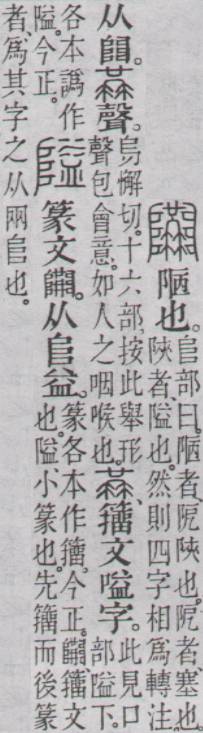 陋也。
𨸏部曰。陋者、阸陜也。阸者、塞也。
陜者、隘也。然則四字相爲轉注。
从𨺅。聲。
烏懈切。十六部。按此舉形
聲包會意。如人之咽喉也。
籒文嗌字。
此見口
部嗌下。
各本譌作
隘。今正。
篆文𨽹。从𨸏益。
篆各本作籒。今正。𨽹籒文
也。隘、小篆也。先籒而後篆
者、爲其字之从兩𨸏也。